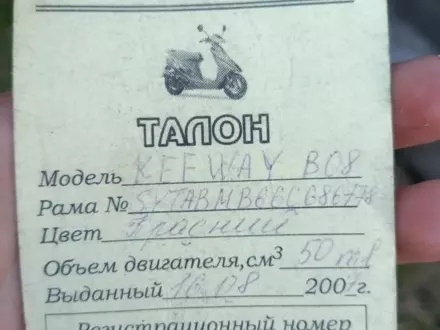 ТАЛОН
Модель KEEWAY B08
Рама №
Цвет Красний
Объем двигателя,см³ 50
Выданный 10.08 200 г.
Регистрационный номер